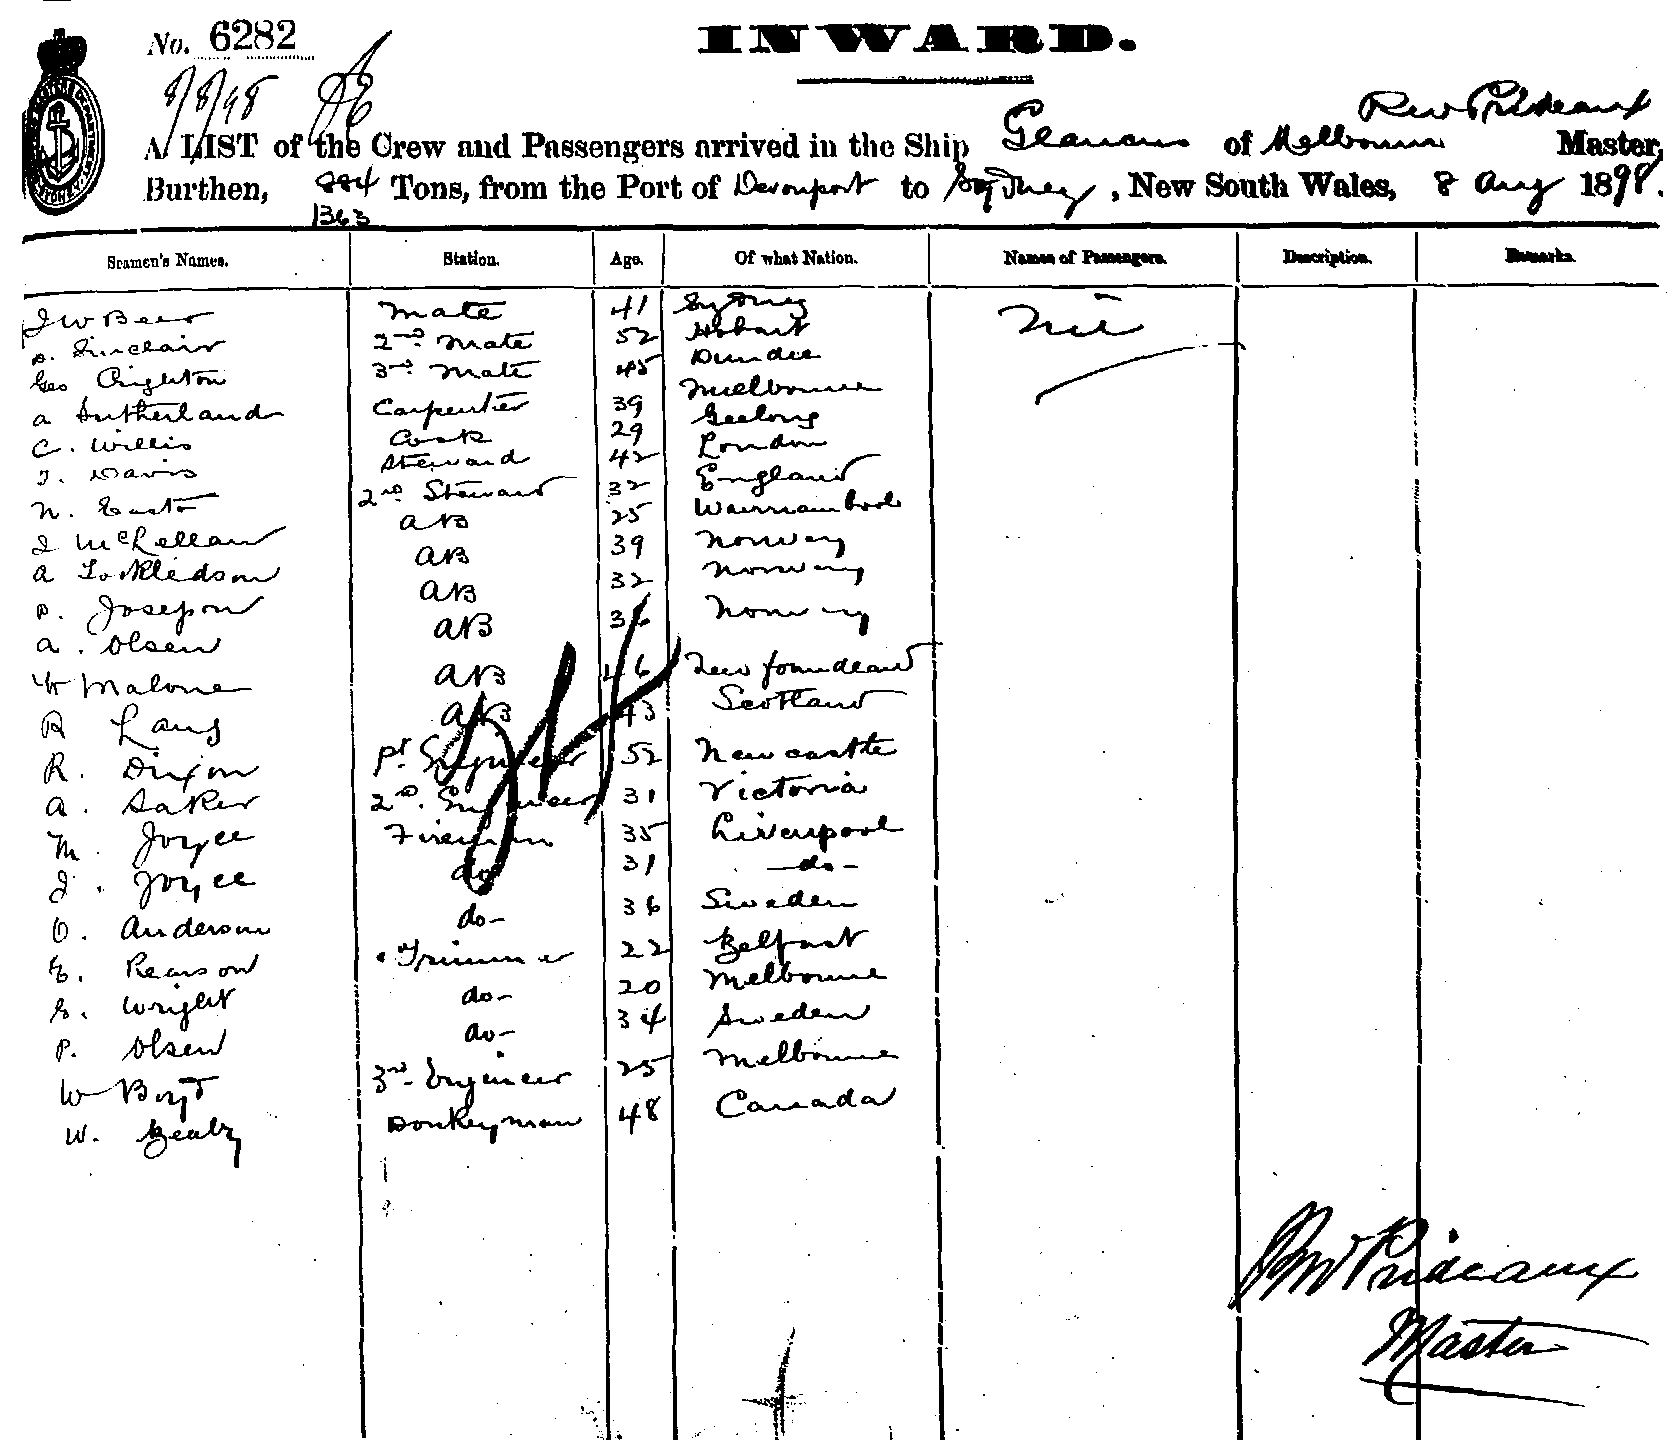 No. 6282
INWARD.
8/8/98
Rew Prideaux
A LIST of the Crew and Passengers arrived in the Ship Glaucus of Melbourne Master,
Burthen, 884 Tons, from the Port of Devonport to Sydney, New South Wales, 8 Aug 1898.
1363
Seamen's Names. Station. Age. Of what Nation. Names of Passengers. Description. Remarks.
J W Beer Mate 41 Sydney Nil
D. Sinclair 2nd Mate 52 Hobart
Geo Crighton 3rd Mate 45 Dundee
A Sutherland Carpenter 39 Melbourne
C. Willis Cook 29 Geelong
T. Davis Steward 42 London
N. Easto 2nd Steward 32 England
J McLellan AB 25 Warrnambool
A AB 39 Norway
P. Josepson AB 32 Norway
A. Olsen AB 36 Norway
W Malone AB 46 Newfoundland
R Lang AB 43 Scotland
R. Dixon Engineer 52 Newcastle
A. Saker 2nd. Engineer 31 Victoria
M. Joyce Fireman 35 Liverpool
J. Joyce do 31 -do-
O. Anderson do- 36 Sweden
E. Pearson Trimmer 22 Belfast
E. Wright do- 20 Melbourne
P. Olsen do- 34 Sweden
W Boyd 3rd Engineer 25 Melbourne
W. Donkeyman 48 Canada
Prideaux
Master